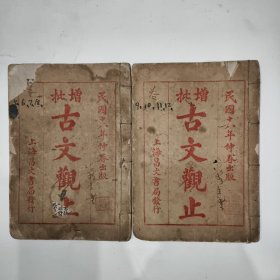 民國十八年仲春出版
增批
古文觀止
上海昌文書局發行
民國十八年仲春出版
增批
古文觀止
上海昌文書局發行